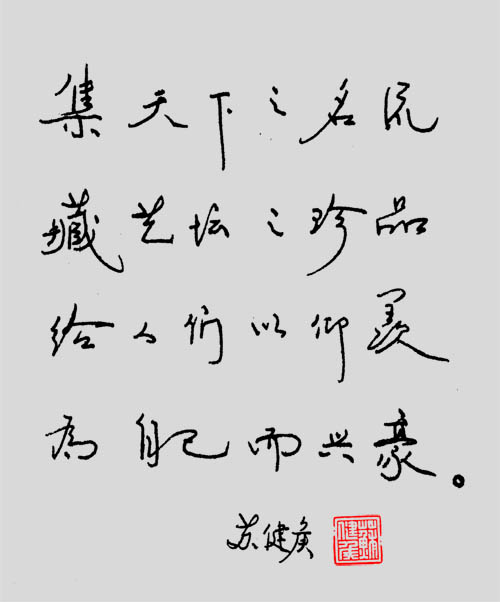 集天下之名流
藏艺坛之珍品
给人们以仰羡
为自己而兴豪。
苏健